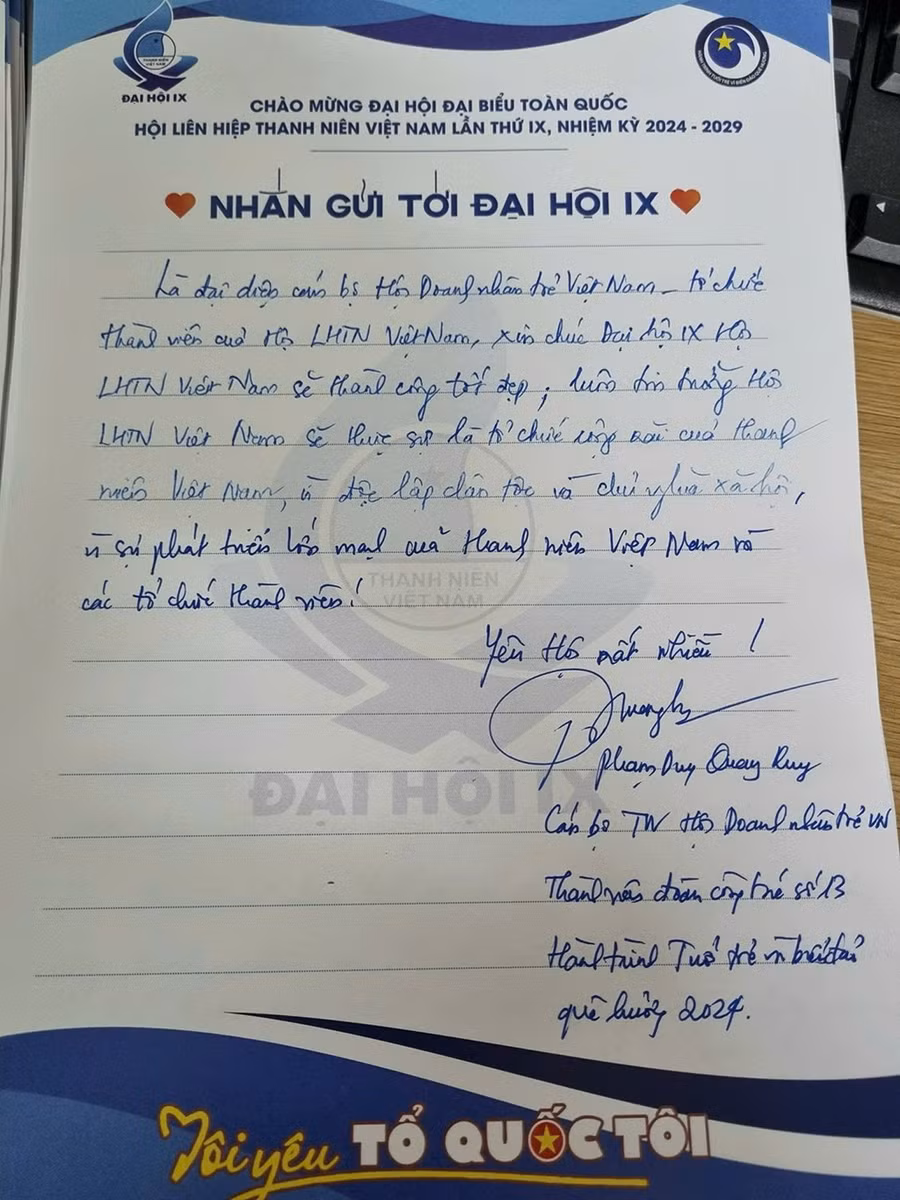 THANH NIÊN
VIỆT NAM
ĐẠI HỘI IX
CHÀO MỪNG ĐẠI HỘI ĐẠI BIỂU TOÀN QUỐC
HỘI LIÊN HIỆP THANH NIÊN VIỆT NAM LẦN THỨ IX, NHIỆM KỲ 2024 - 2029
NHẮN GỬI TỚI ĐẠI HỘI IX
Là đại diện cán bộ Hội Doanh nhân trẻ Việt Nam - tổ chức
thành viên của Hội LHTN Việt Nam, xin chúc Đại hội IX Hội
LHTN Việt Nam sẽ thành công tốt đẹp; luôn tin tưởng Hội
LHTN Việt Nam sẽ thực sự là tổ chức rộng rãi của thanh
niên Việt Nam, vì độc lập dân tộc và chủ nghĩa xã hội,
vì sự phát triển lớn mạnh của thanh niên Việt Nam và
các tổ chức thành viên!
Yêu Hội rất nhiều!
Phạm Duy Quang Huy
Cán bộ TW Hội Doanh nhân trẻ VN
Thành viên đoàn công tác số 13
Hành trình Tuổi trẻ vì biển đảo
quê hương 2024.
THANH NIÊN
VIỆT NAM
ĐẠI HỘI IX
Tôi yêu TỔ QUỐC TÔI